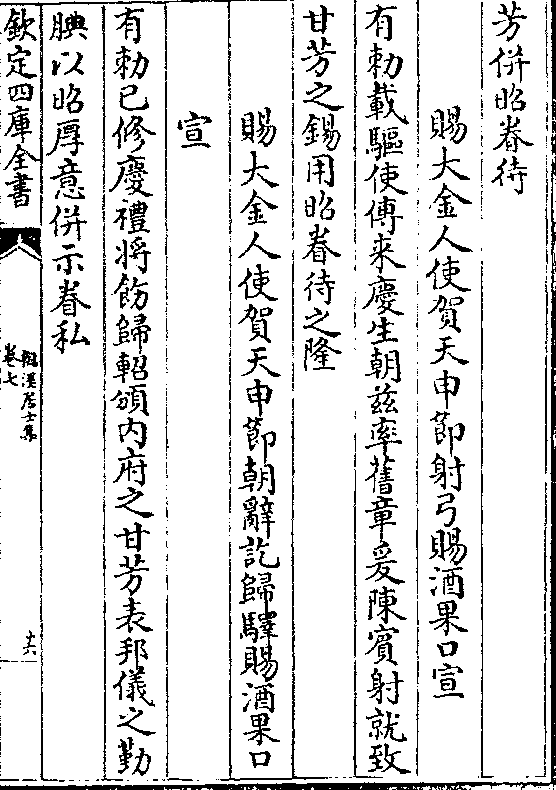 芳併昭眷待
賜大金人使賀天申節射弓賜酒果口宣
有勅載驅使傳来慶生朝兹率舊章爰陳賓射就致
甘芳之錫用昭眷待之隆
賜大金人使賀天申節朝辭訖歸驛賜酒果口
宣
有勅已修慶禮将飭歸軺頒内府之甘芳表邦儀之勤
腆以昭厚意併示眷私
欽定四庫全書
卷七
溪居士集
十六